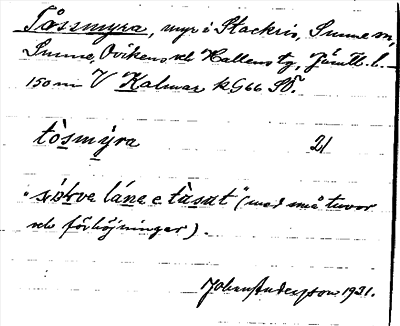 Tåssmyra, myr i Stackris, Sunne sn,
Sunne, Ovikens och Hallens tg, Jämtl. l.
150 m V Kalmar kG66 SO.
tòsmýra 21
"själva lána e tàsut" (med små tuvor
och förhöjningar).
Johan Anderson 1931.